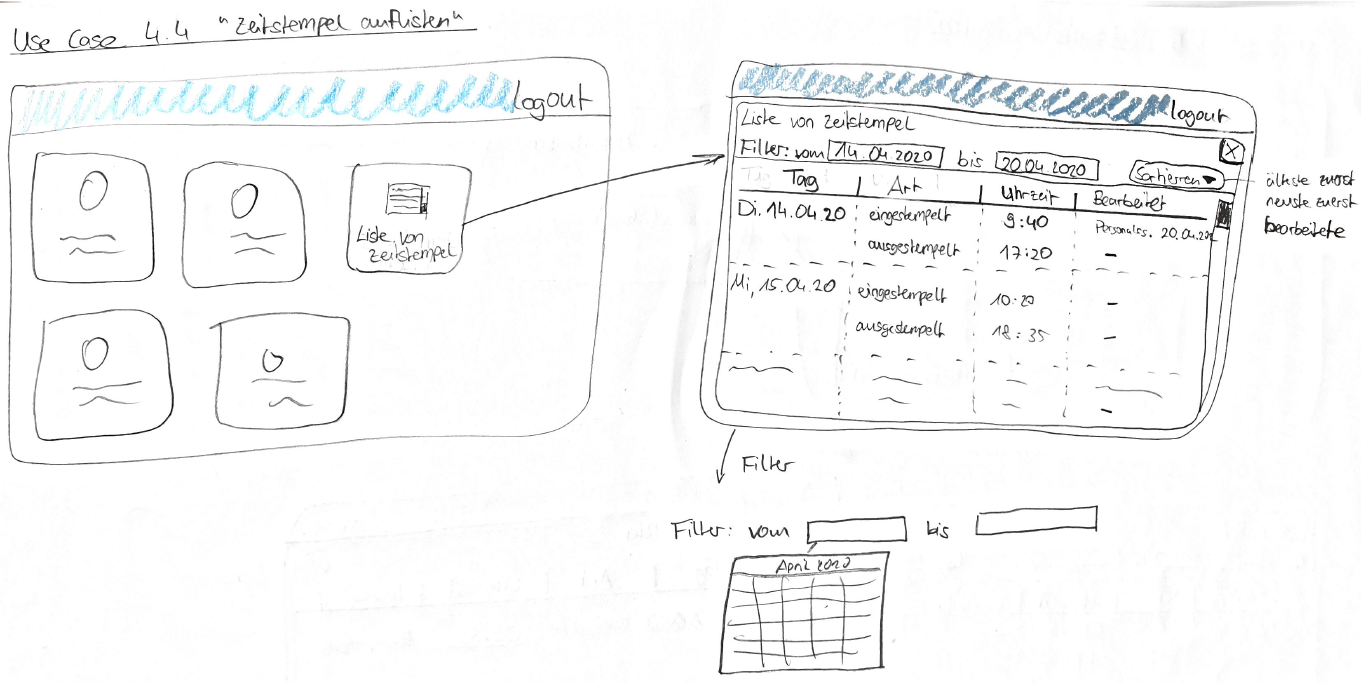 Use Case 4.4 "Zeitstempel auflisten"
logout
Liste von
Zeitstempel
logout
Liste von Zeitstempel
X
Filter: vom 14.04.2020 bis 20.04.2020
Sortieren
älteste zuerst
neuste zuerst
bearbeitete
Tag | Art | Uhrzeit | Bearbeitet
Di. 14.04.20 eingestempelt 9:40 20.04.20
ausgestempelt 17:20 –
Mi, 15.04.20 eingestempelt 10:20 –
ausgestempelt 18:35 –
–
Filter
Filter: vom bis
April 2020